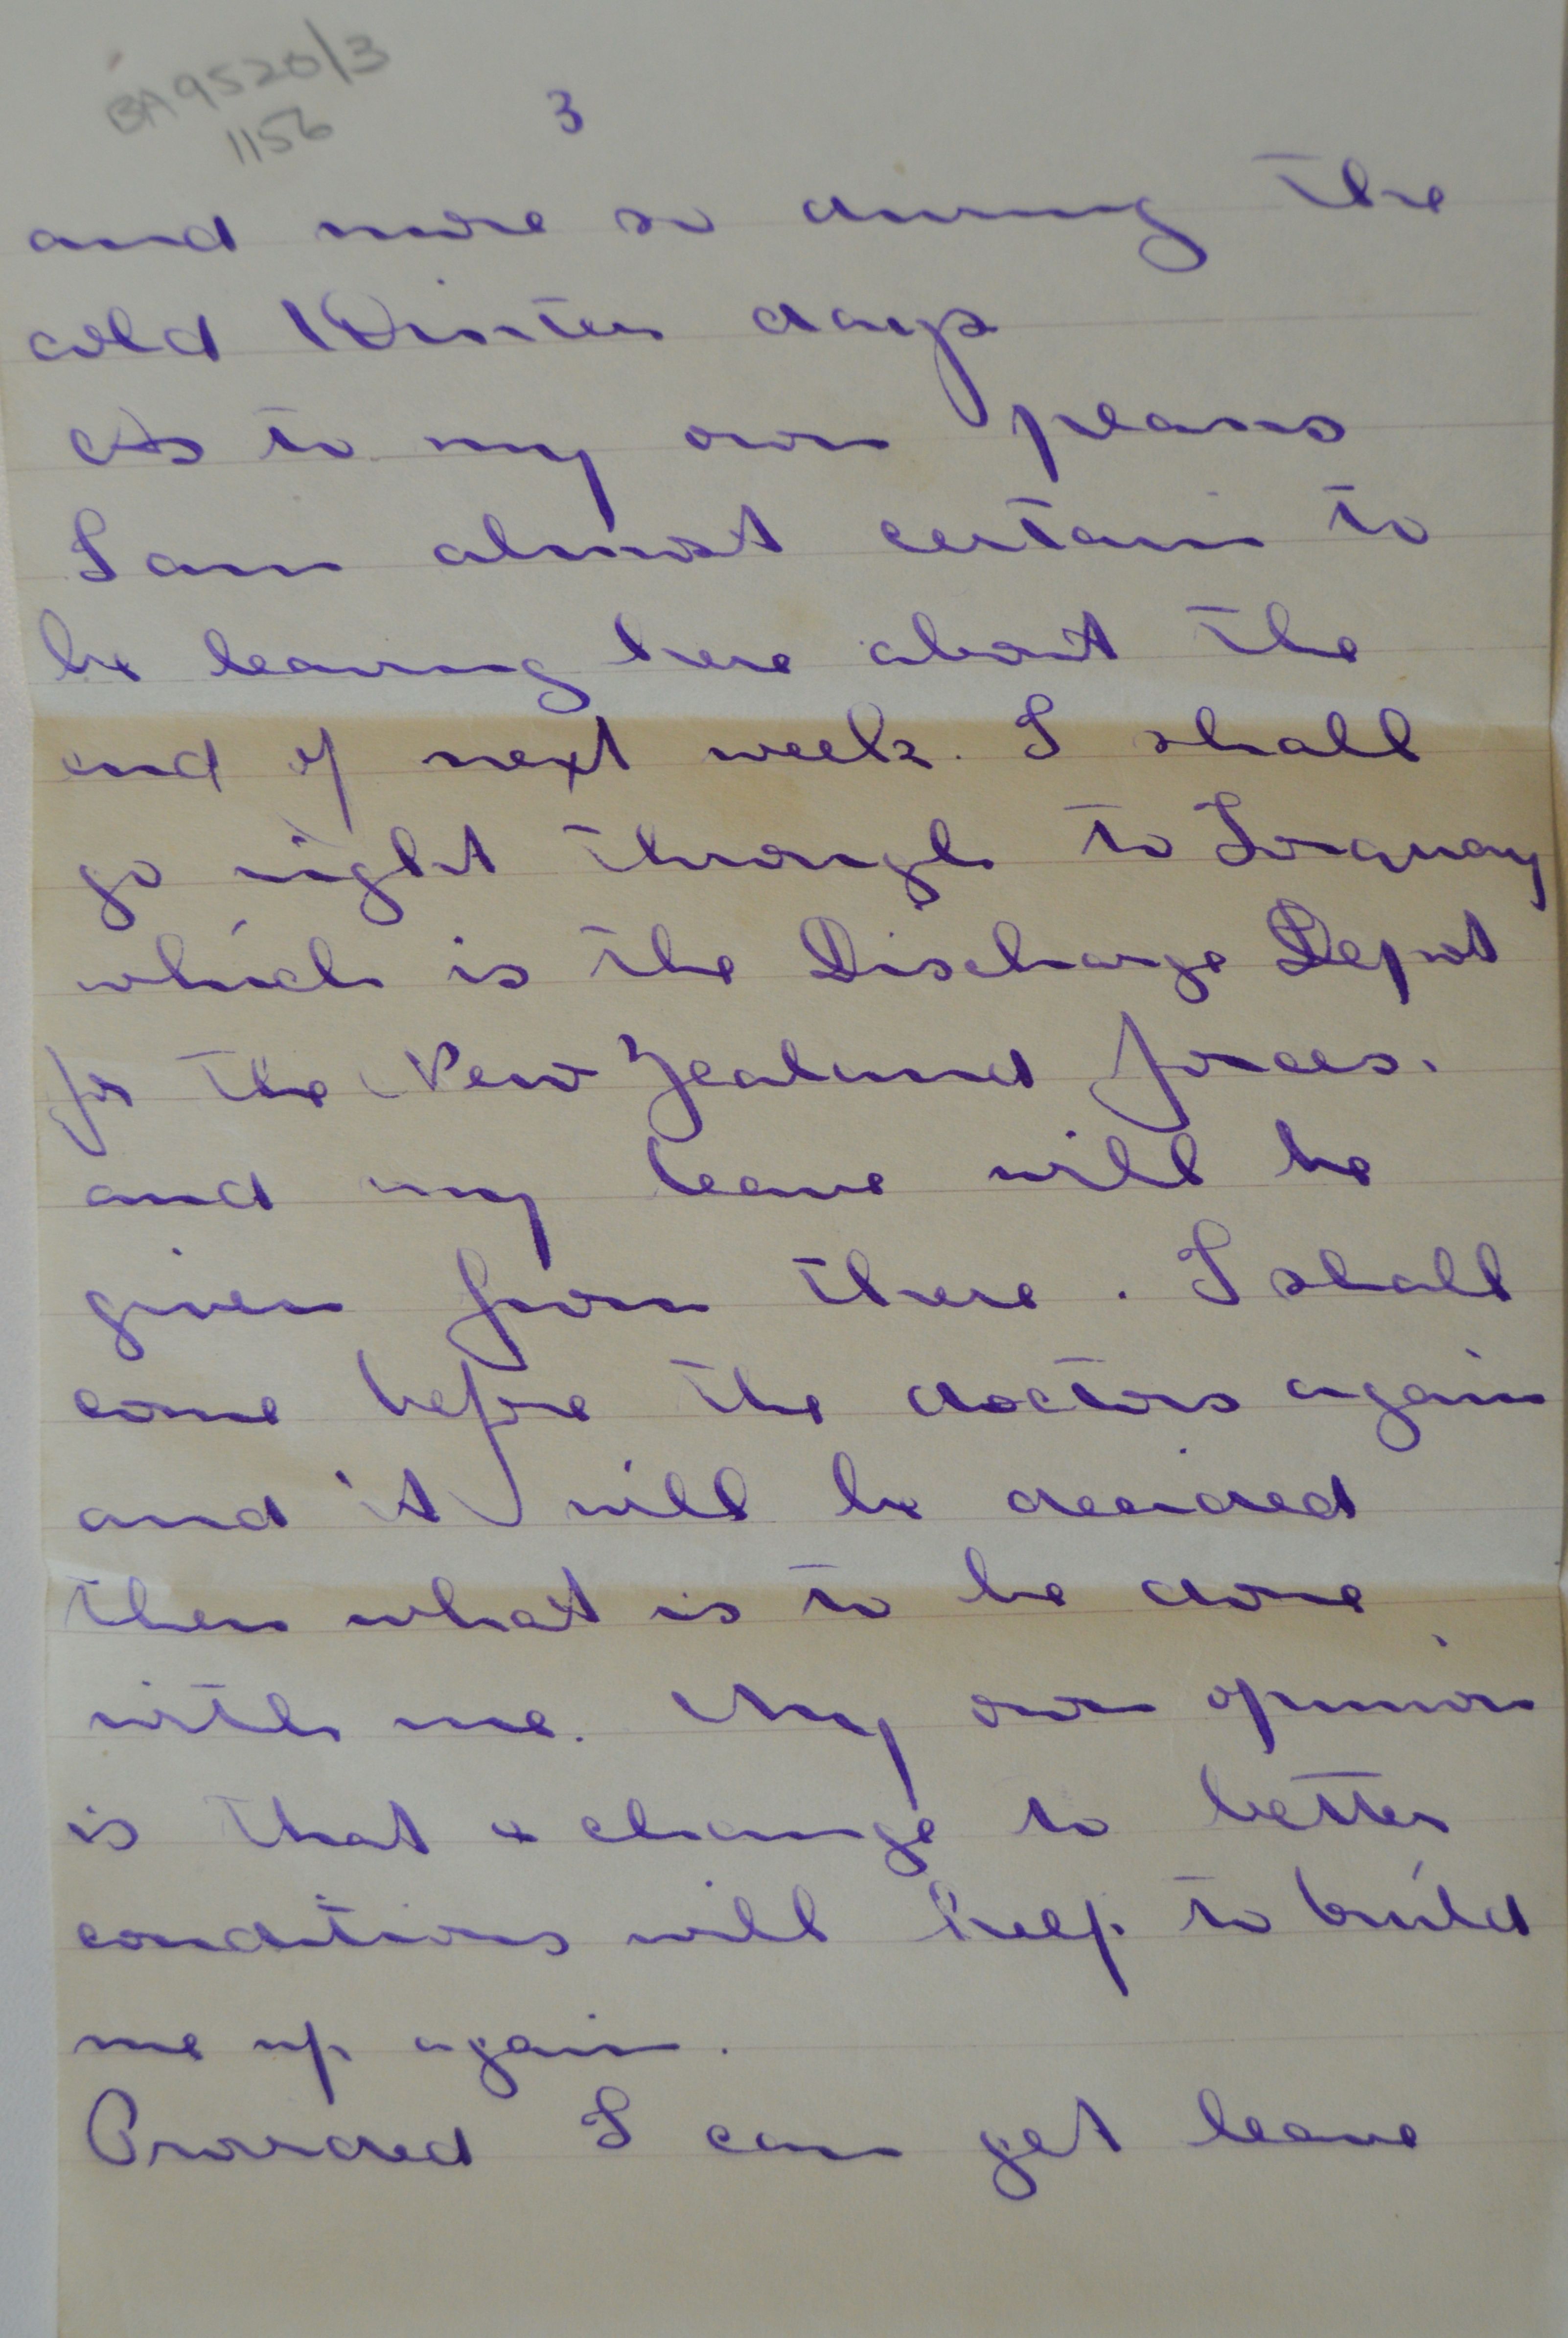 BA9520/3
1156
3
and more so during the
cold Winter days
As to my own plans
I am almost certain to
be leaving here about the
end of next week. I shall
go right through to Torquay
which is the Discharge Depot
for the New Zealand forces.
and my leave will be
given from there. I shall
come before the doctors again
and it will be decided
then what is to be done
with me. My own opinion
is that a change to better
conditions will help to build
me up again.
Provided I can get leave